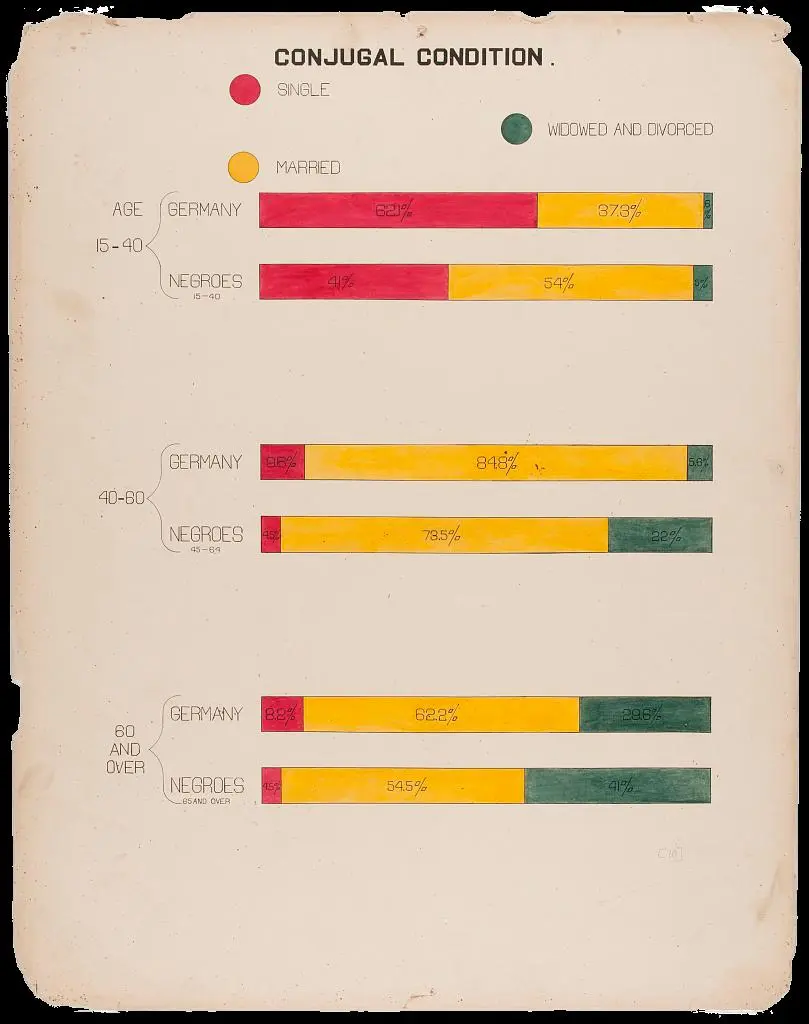 CONJUGAL CONDITION.
SINGLE
WIDOWED AND DIVORCED
MARRIED
AGE
15-40
GERMANY
62.1%
37.3%
NEGROES
15-40
41%
54%
5%
40-60
GERMANY
9.6%
84.8%
5.6%
NEGROES
45-64
4.5%
73.5%
22%
60
AND
OVER
GERMANY
8.2%
62.2%
29.6%
NEGROES
65 AND OVER
4.5%
54.5%
41%